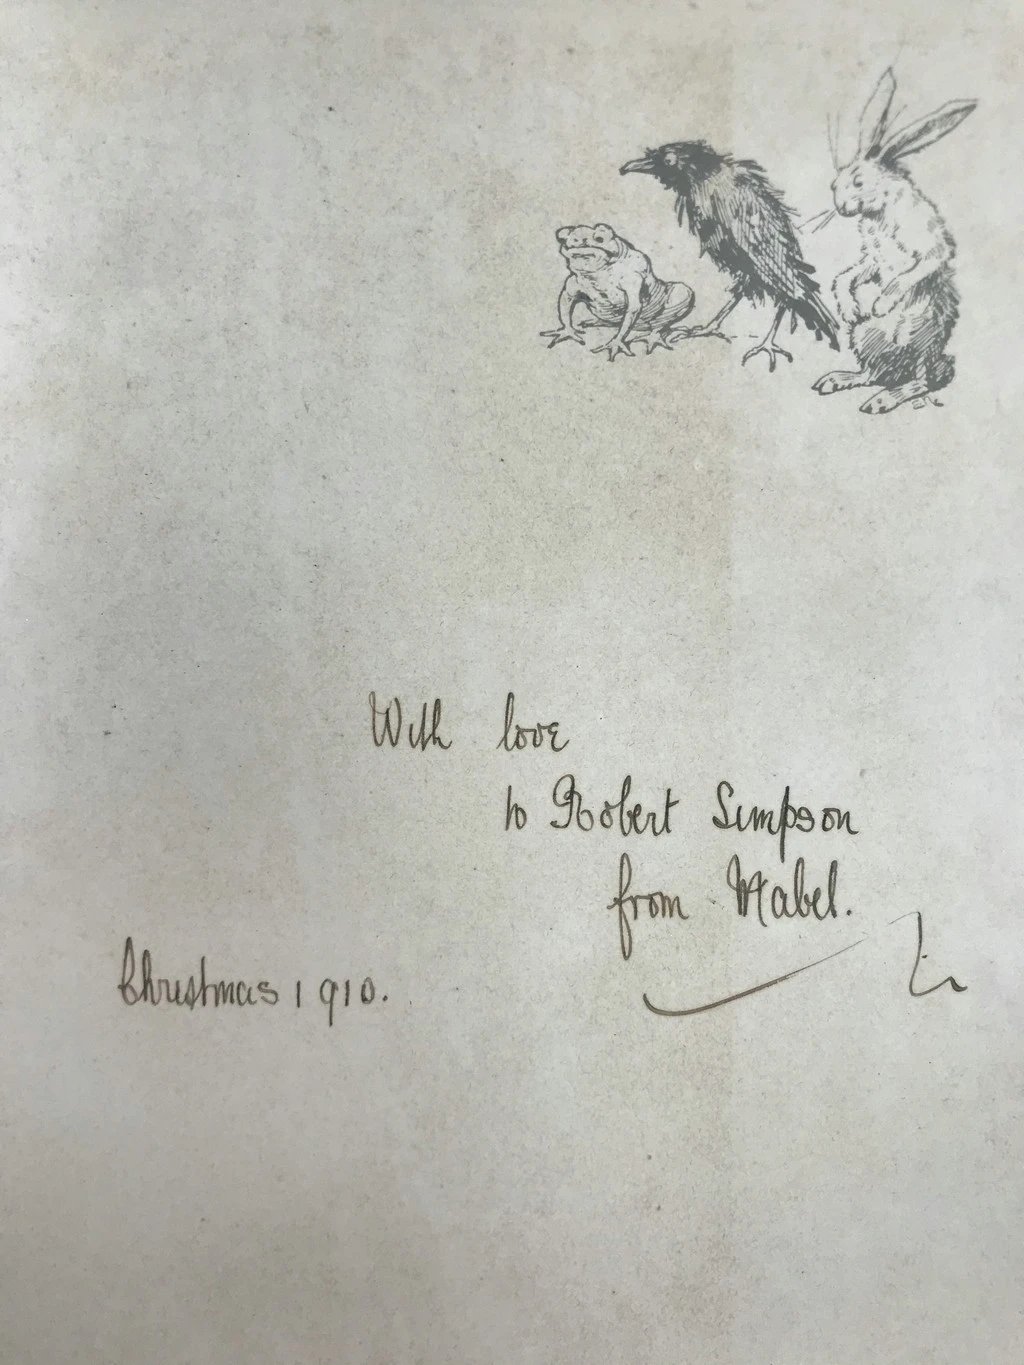 With love
to Robert Simpson
from Mabel.
Christmas 1910.